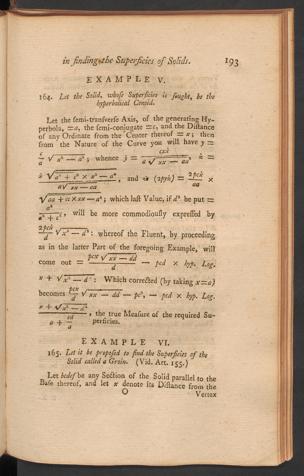 in finding the Superficies of Solids. 193
EXAMPLE V.
164. Let the Solid, whose Superficies is sought, be the
hyperbolical Conoid.
Let the semi-transverse Axis, of the generating Hy-
perbola, =a, the semi-conjugate =c, and the Distance
of any Ordinate from the Center thereof =x; then
from the Nature of the Curve you will have y =
c/a √x²—a²; whence ẏ = cxẋ / a√xx—aa, ż =
ẋ √a²+c² × x²—a⁴ / a√xx—aa, and ṡ (2pyż) = 2pcẋ/aa ×
√aa+cc×xx—a⁴; which last Value, if d² be put =
a⁴/a²+c², will be more commodiously expressed by
2pcẋ/d √x²—d²: whereof the Fluent, by proceeding
as in the latter Part of the foregoing Example, will
come out = pcx √xx—dd / d — pcd × hyp. Log.
x + √x²—d²: Which corrected (by taking x=a)
becomes pcx/d √xx—dd — pc², — pcd × hyp. Log.
x + √x²—d² / a + cd/a, the true Measure of the required Su-
perficies.
EXAMPLE VI.
165. Let it be proposed to find the Superficies of the
Solid called a Groin. (Vid. Art. 155.)
Let be any Section of the Solid parallel to the
Base thereof, and let x denote its Distance from the
O Vertex